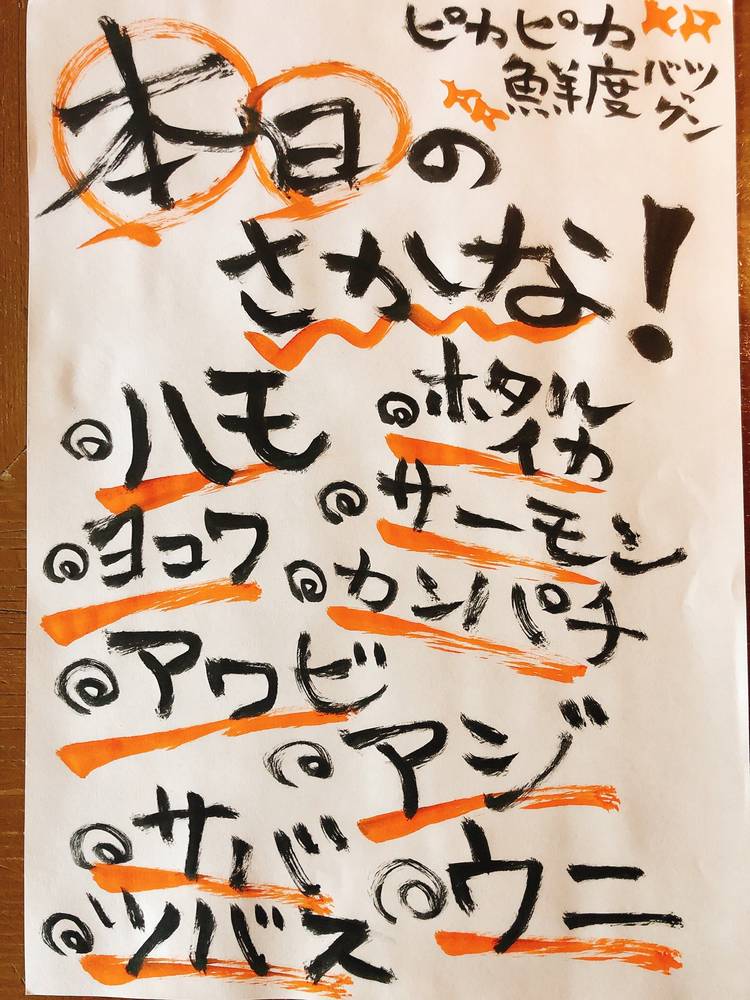 ピカピカ
鮮度バツグン
本日の
さかな!
ハモ
ホタル
イカ
サーモン
ヨコワ
カンパチ
アワビ
アジ
サバ
ウニ
ツバス